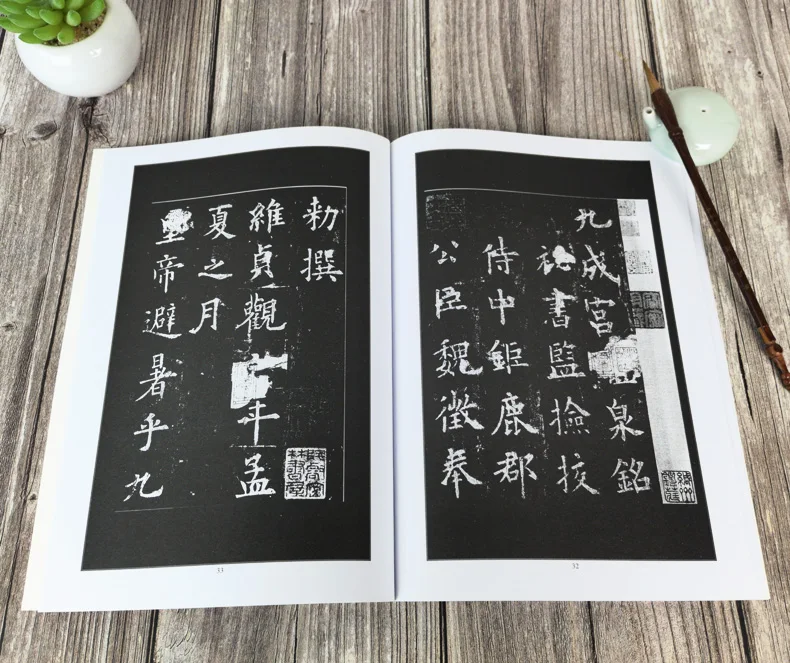 九成宮泉銘
祕書監撿挍
侍中鉅鹿郡
公臣魏徵奉
32
勑撰
維貞觀年孟
夏之月
皇帝避暑乎九
33